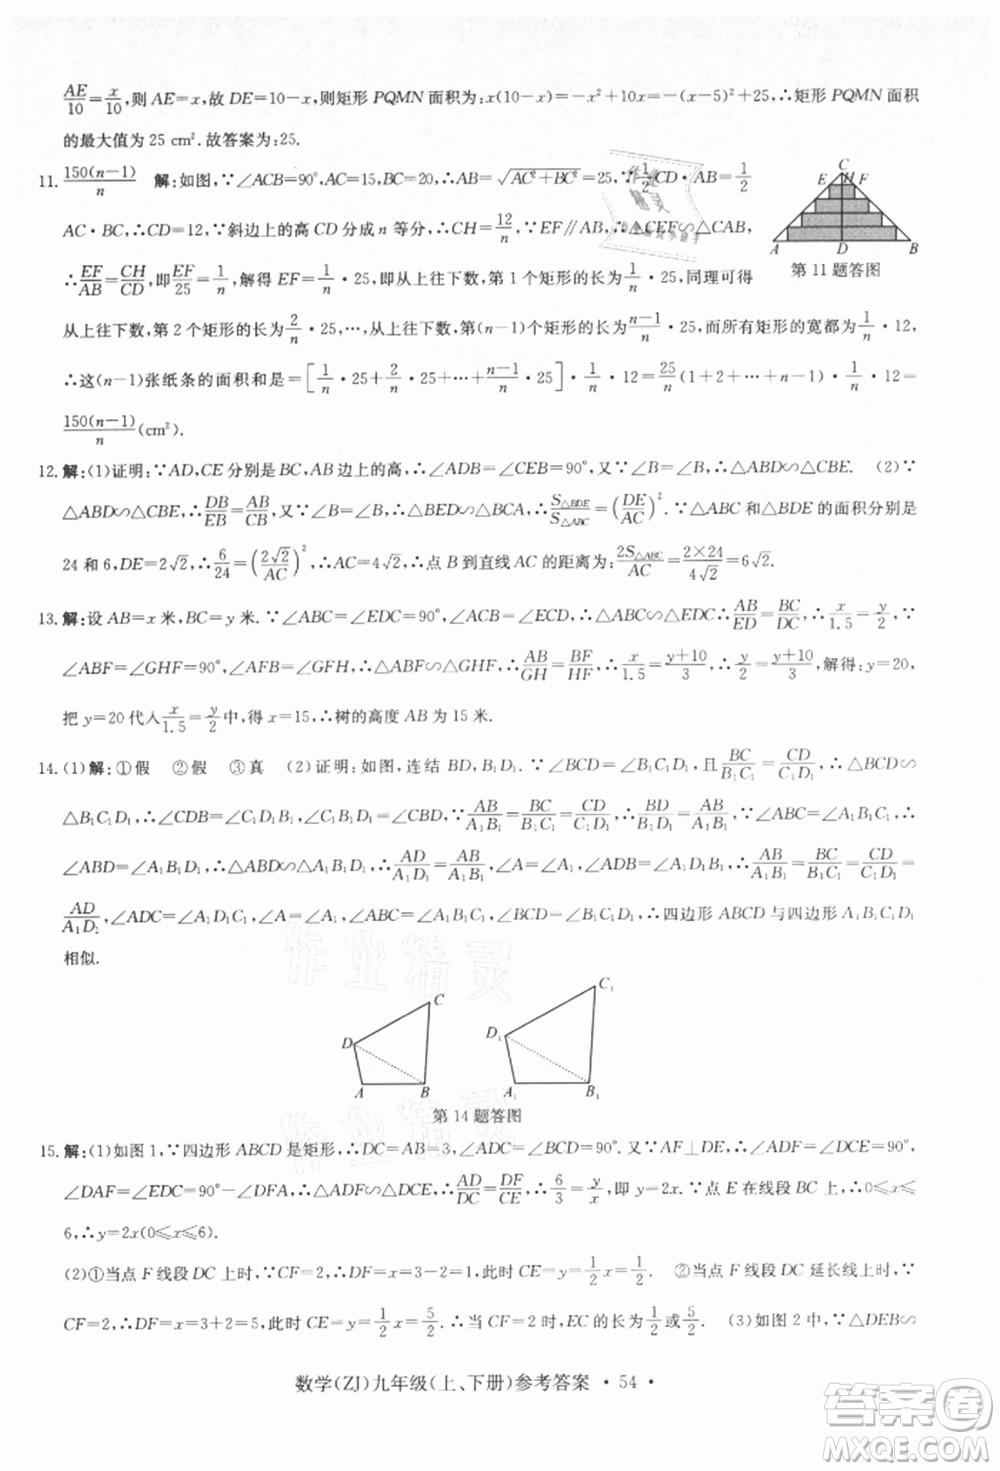 AE/10=x/10,则 AE=x,故 DE=10-x,则矩形 PQMN 面积为:x(10-x)=-x²+10x=-(x-5)²+25,∴矩形 PQMN 面积
的最大值为 25 cm². 故答案为:25.
11. 150(n-1)/n 解:如图,∵∠ACB=90°,AC=15,BC=20,∴AB=√(AC²+BC²)=25,∵1/2CD·AB=1/2
AC·BC,∴CD=12,∵斜边上的高 CD 分成 n 等分,∴CH=12/n,∵EF//AB,∴△CEF∽△CAB,
∴EF/AB=CH/CD,即EF/25=1/n,解得 EF=1/n·25,即从上往下数,第 1 个矩形的长为1/n·25,同理可得
从上往下数,第 2 个矩形的长为2/n·25,…,从上往下数,第(n-1)个矩形的长为n-1/n·25,而所有矩形的宽都为1/n·12,
∴这(n-1)张纸条的面积和是=[1/n·25+2/n·25+…+n-1/n·25]·1/n·12=25/n(1+2+…+n-1)·1/n·12=
150(n-1)/n(cm²).
C
E H F
A D B
第 11 题答图
12. 解:(1)证明:∵AD,CE 分别是 BC,AB 边上的高,∴∠ADB=∠CEB=90°,∵∠B=∠B,∴△ABD∽△CBE. (2)∵
△ABD∽△CBE,∴DB/EB=AB/CB,又∵∠B=∠B,∴△EBD∽△CBA,∴S△BDE/S△ABC=(DE/AC)².∵△ABC 和△BDE 的面积分别是
24 和 6,DE=2√2,∴6/24=(2√2/AC)²,∴AC=4√2,∴点 B 到直线 AC 的距离为:2S△ABC/AC=2×24/4√2=6√2.
13. 解:设 AB=x 米,BC=y 米.∵∠ABC=∠EDC=90°,∠ACB=∠ECD,∴△ABC∽△EDC∴AB/ED=BC/DC,∴x/1.5=y/2,∵
∠ABF=∠GHF=90°,∠AFB=∠GFH,∴△ABF∽△GHF,∴AB/GH=BF/HF,∴x/1.5=y+10/3,∴y/2=y+10/3,解得:y=20,
把 y=20 代入x/1.5=y/2中,得 x=15,∴树的高度 AB 为 15 米.
14. (1)解:①假 ②假 ③真 (2)证明:如图,连结 BD,B₁D₁.∵∠BCD=∠B₁C₁D₁,且BC/B₁C₁=CD/C₁D₁,∴△BCD∽
△B₁C₁D₁,∴∠CDB=∠C₁D₁B₁,∠C₁B₁D₁=∠CBD,∵AB/A₁B₁=BC/B₁C₁=CD/C₁D₁,∴BD/B₁D₁=AB/A₁B₁,∵∠ABC=∠A₁B₁C₁,∴
∠ABD=∠A₁B₁D₁,∴△ABD∽△A₁B₁D₁,∴AD/A₁D₁=AB/A₁B₁,∠A=∠A₁,∠ADB=∠A₁D₁B₁,∴AB/A₁B₁=BC/B₁C₁=CD/C₁D₁=
AD/A₁D₂,∠ADC=∠A₁D₁C₁,∠A=∠A₁,∠ABC=∠A₁B₁C₁,∠C=∠C₁,∴四边形 ABCD 与四边形 A₁B₁C₁D₁
相似.
C C₁
D D₁
A B A₁ B₁
第 14 题答图
15. 解:(1)如图 1,∵四边形 ABCD 是矩形,∴DC=AB=3,∠ADC=∠BCD=90°.又∵AF⊥DE,∴∠ADF=∠DCE=90°,
∠DAF=∠EDC=90°-∠DFA,∴△ADF∽△DCE,∴AD/DC=DF/CE,∴6/3=y/x,即 y=2x.∵点 E 在线段 BC 上,∴0≤x≤
6,∴y=2x(0≤x≤6).
(2)①当点 F 线段 DC 上时,∵CF=2,∴DF=x=3-2=1,此时 CE=y=1/2x=1/2. ②当点 F 线段 DC 延长线上时,∵
CF=2,∴DF=x=3+2=5,此时 CE=y=1/2x=5/2,∴CE 的长为1/2或5/2. (3)如图 2,∵△ADF∽
数学(ZJ)九年级(上、下册)参考答案 · 54 ·
作业精灵
作业精灵
答案圈
MXQE.COM